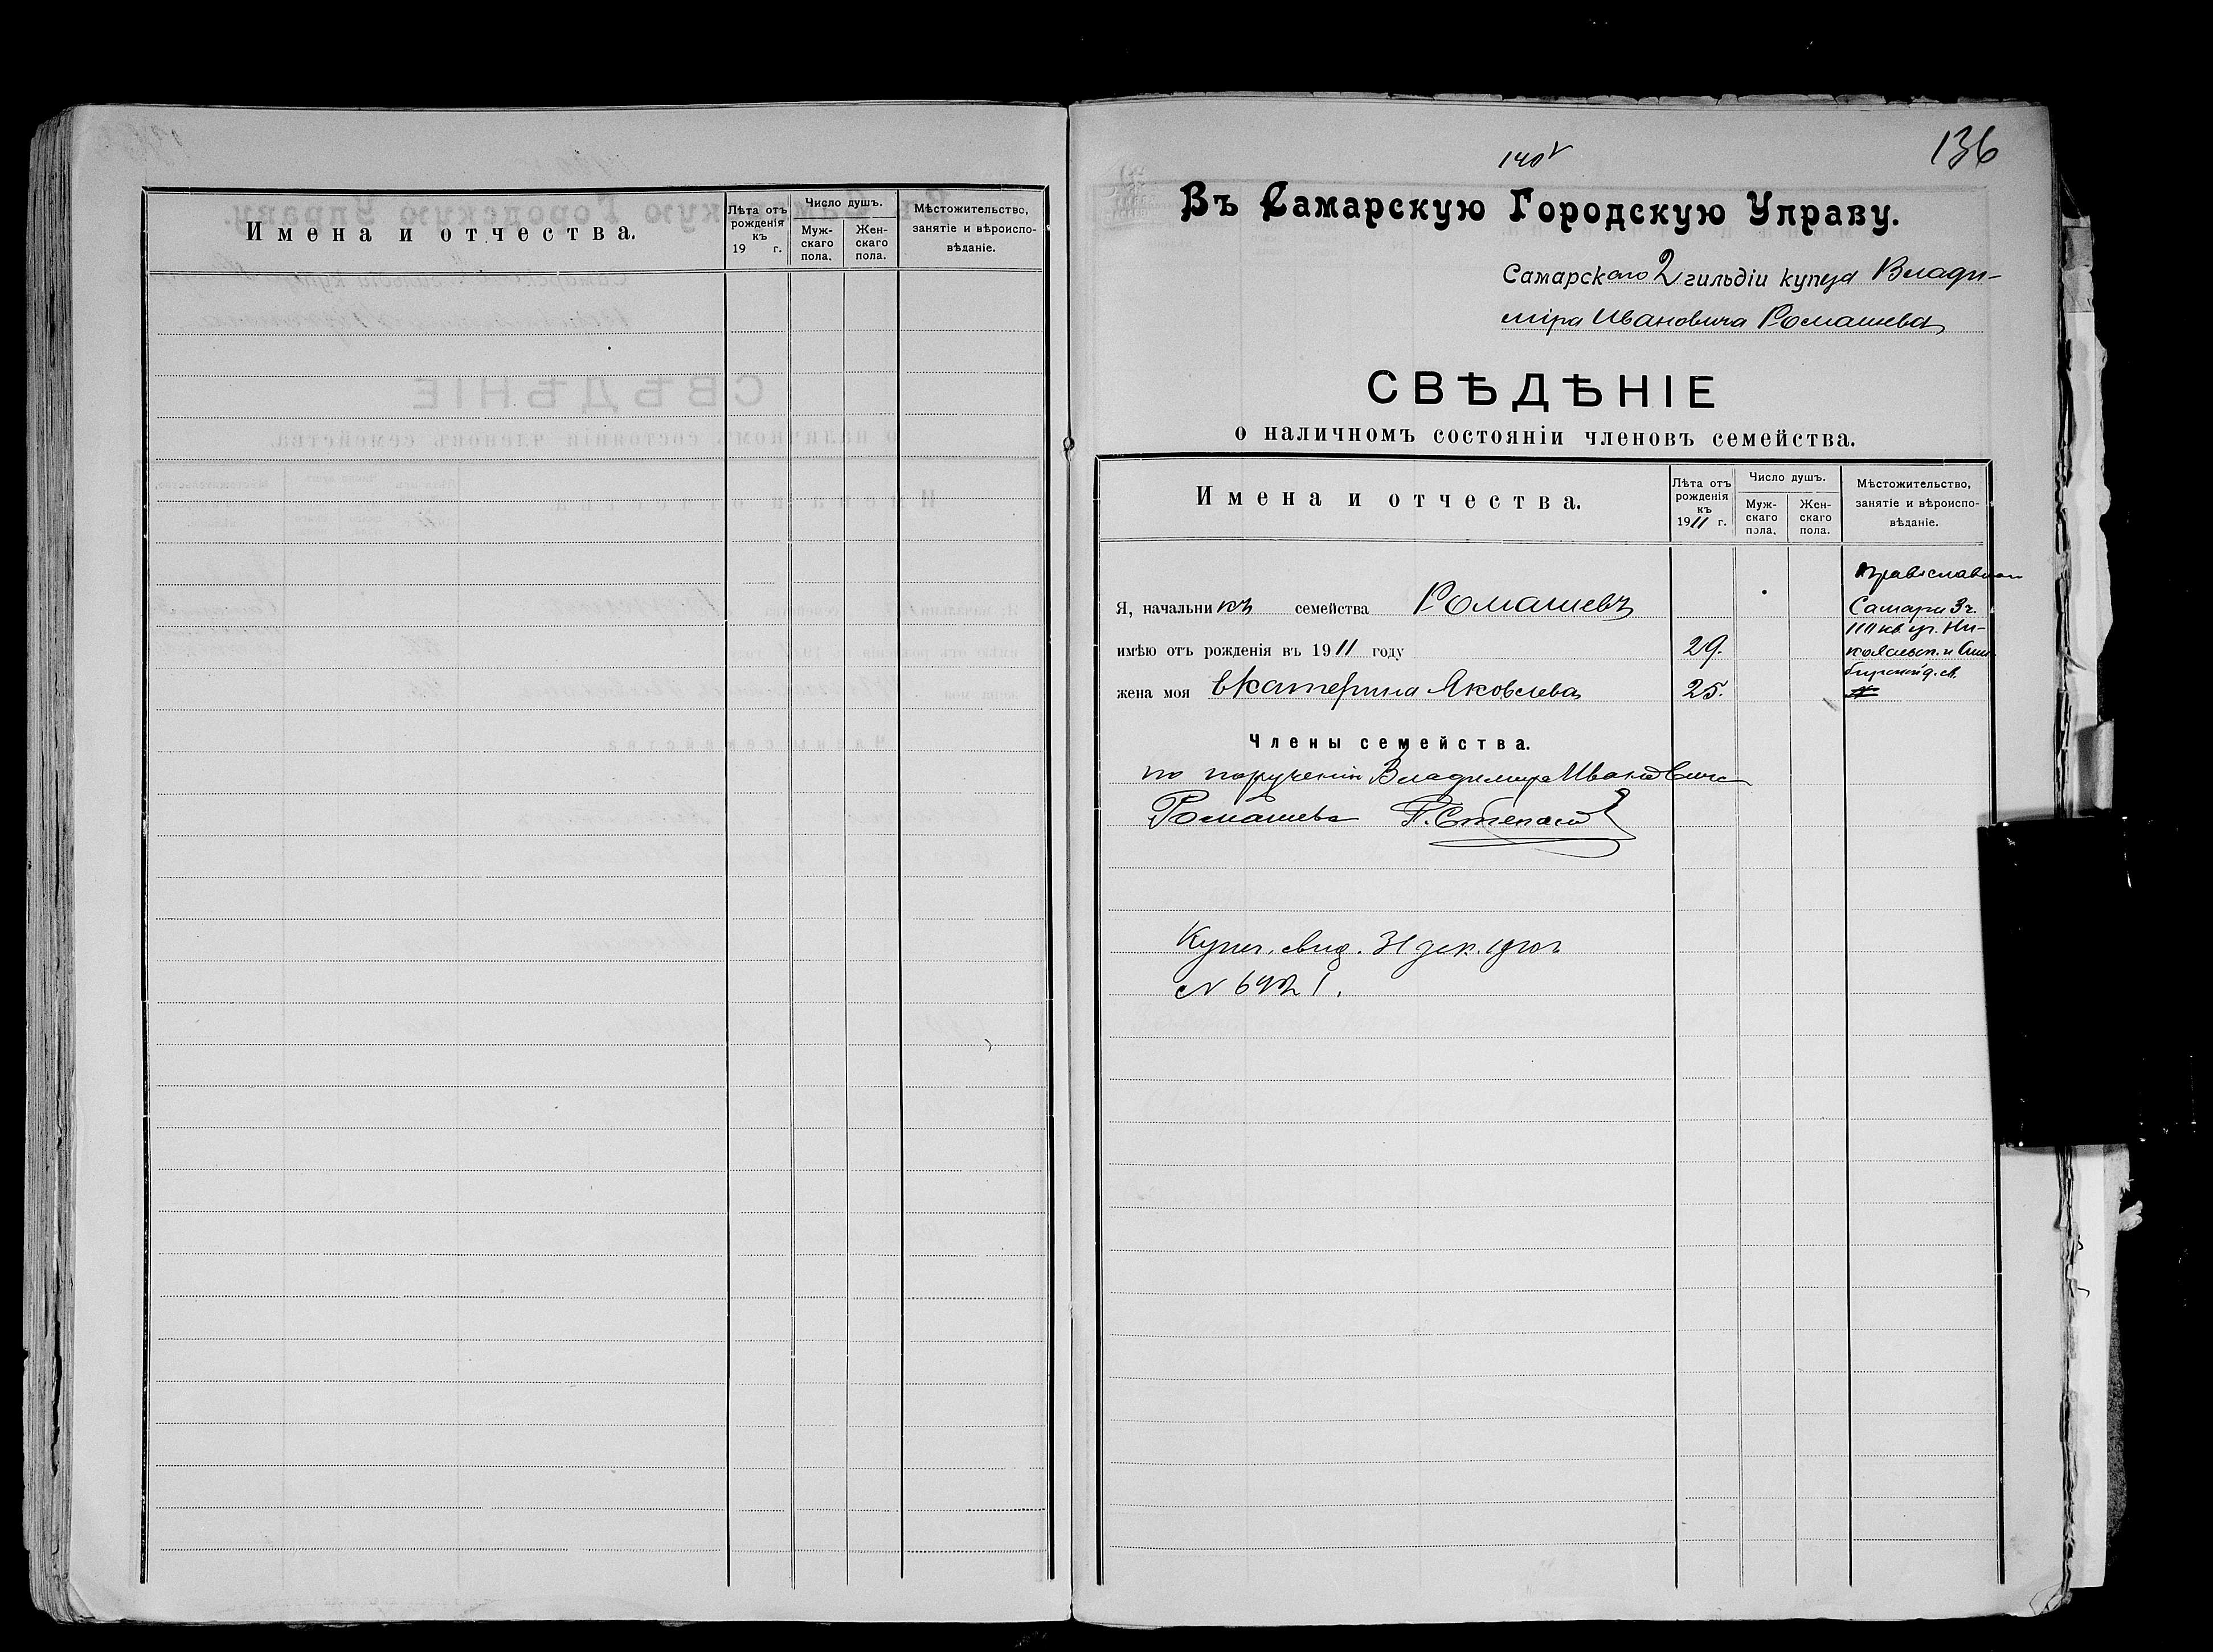 Имена и отчества.
Лѣта отъ рожденія къ 19 г.
Число душъ.
Муж-скаго пола.
Жен-скаго пола.
Мѣстожительство, занятіе и вѣроиспо-вѣданіе.
136
140
Въ Самарскую Городскую Управу.
Самарскаго 2 гильдіи купца Влади-
міра Ивановича Ромашева
СВѢДѢНІЕ
о наличномъ состояніи членовъ семейства.
Имена и отчества.
Лѣта отъ рожденія къ 1911 г.
Число душъ.
Муж-скаго пола.
Жен-скаго пола.
Мѣстожительство, занятіе и вѣроиспо-вѣданіе.
Я, начальникъ семейства Ромашевъ
имѣю отъ рожденія въ 1911 году 29.
жена моя Екатерина Яковлева 25.
Самары 3 ч.
111 кв. уг. Ни-
Члены семейства.
по порученію Владимира Ивановича
Ромашева
Купеч. свид. 31 дек. 1910 г